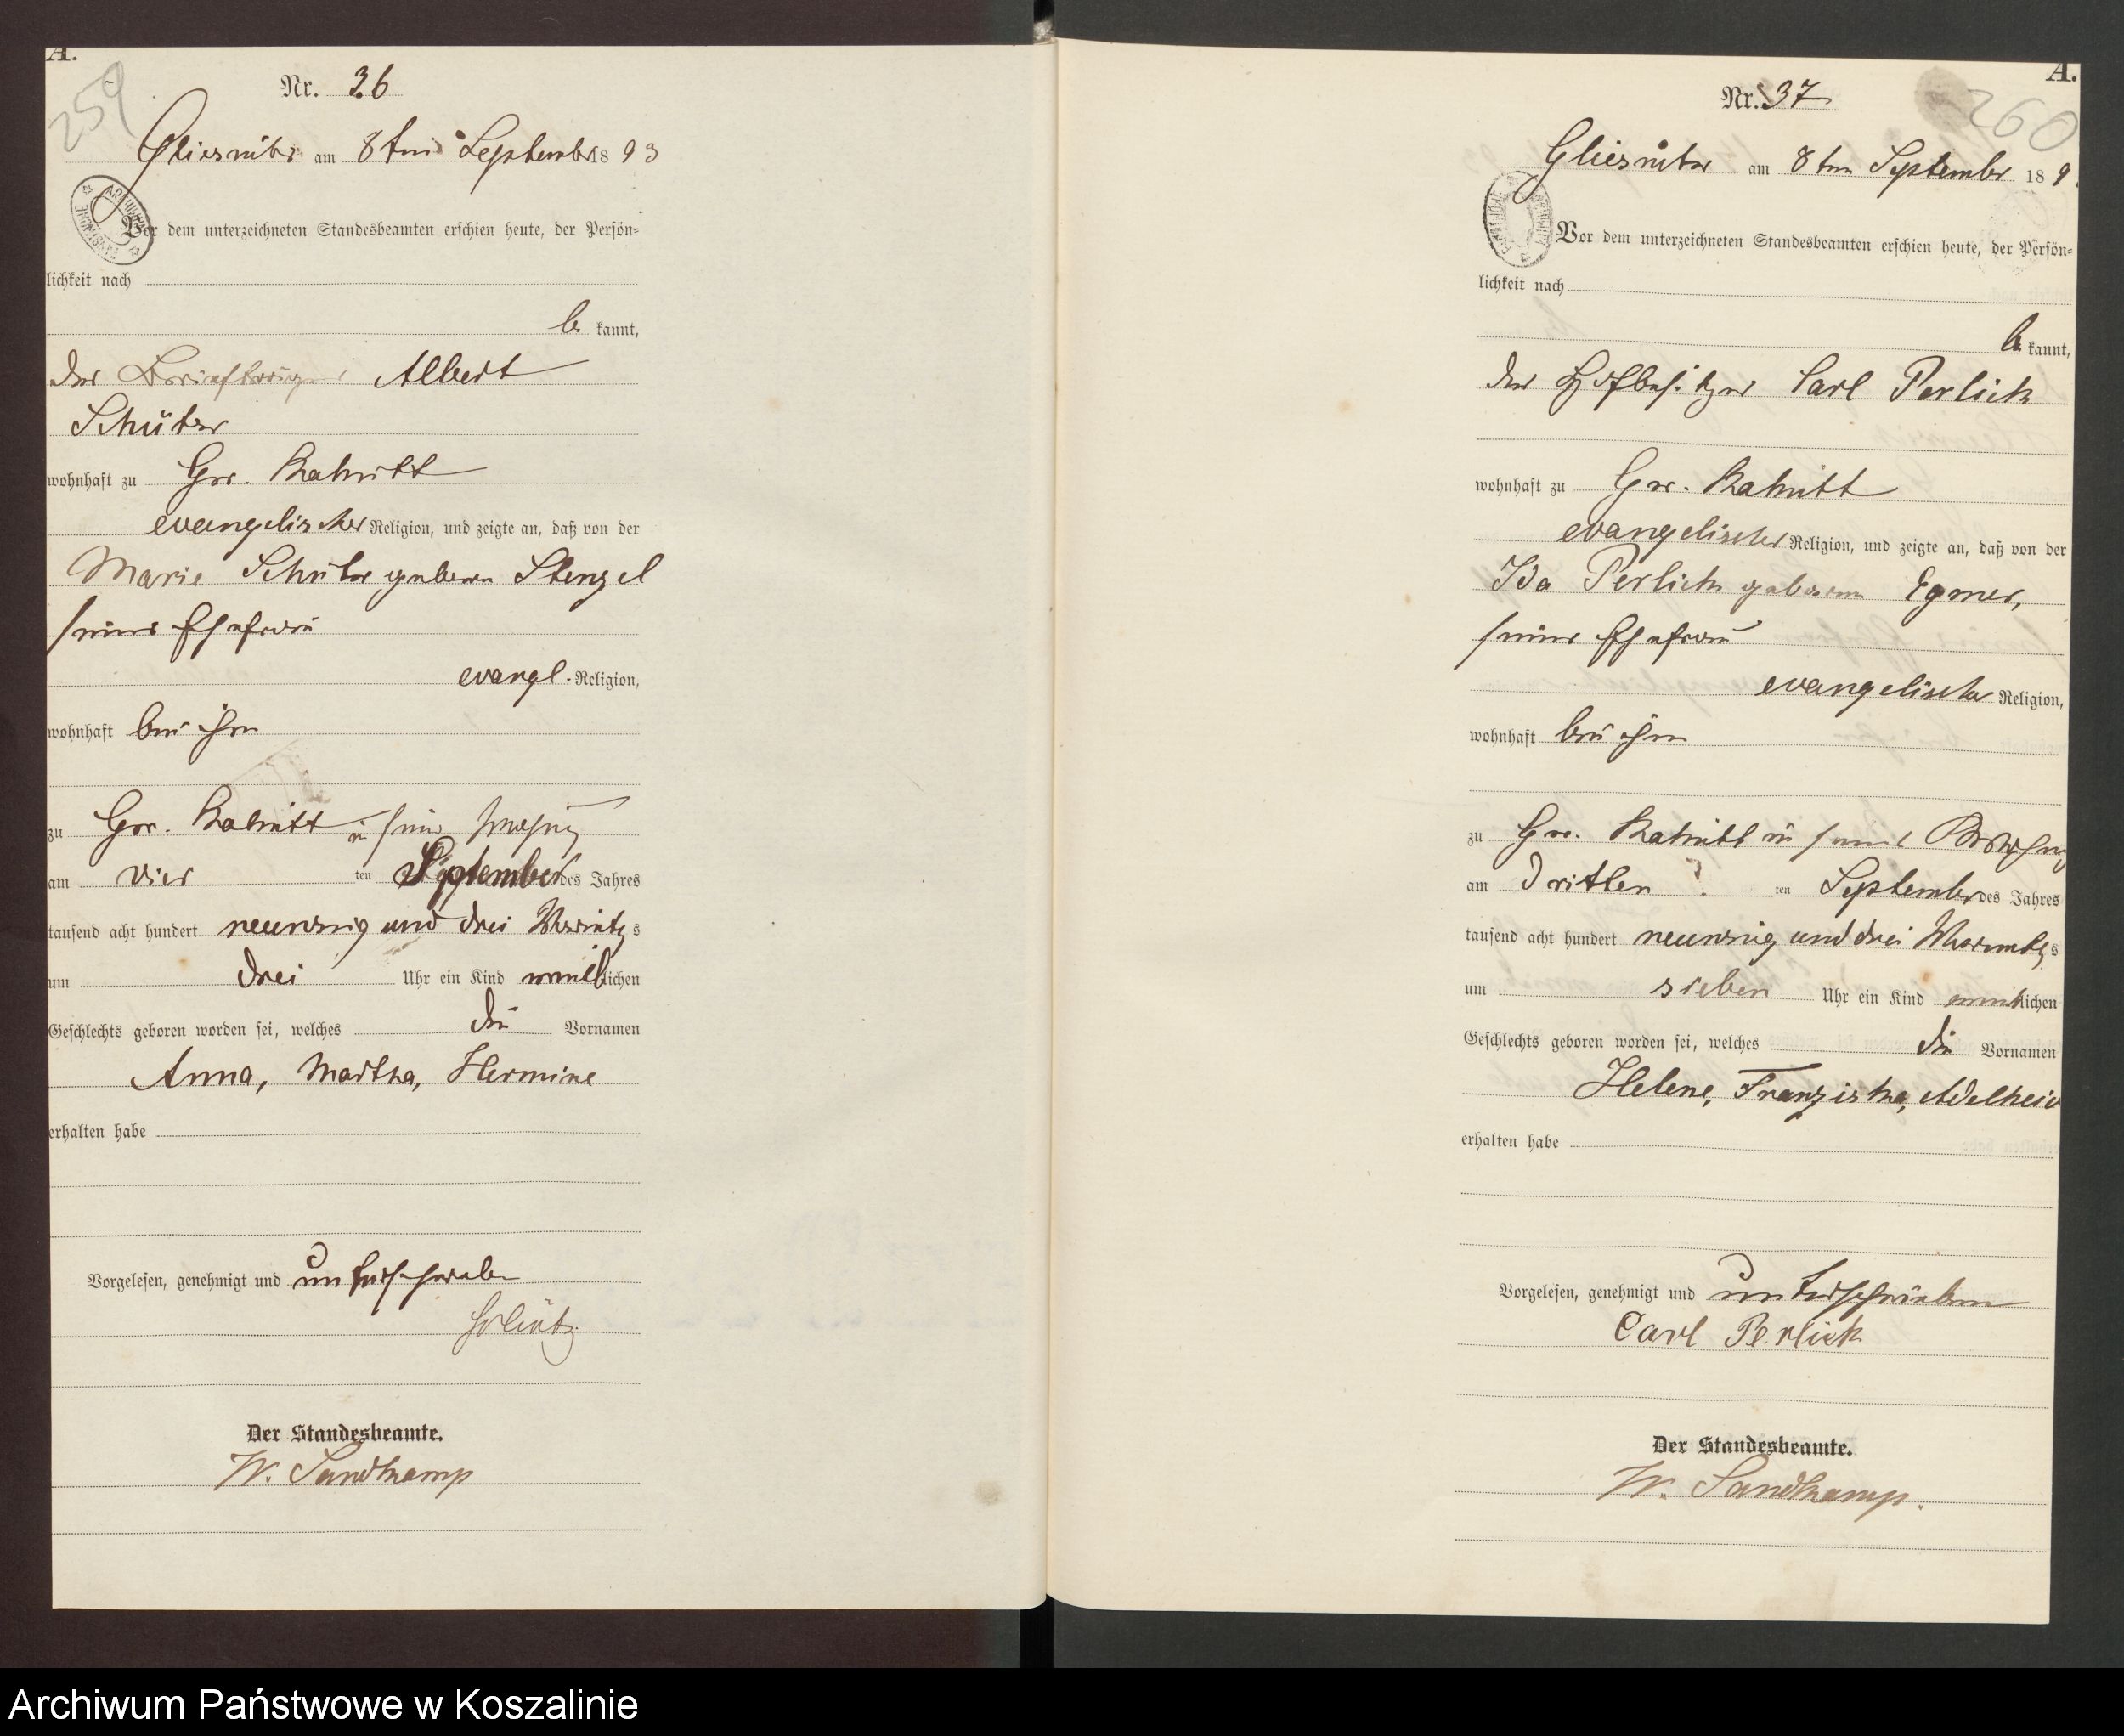 A.
259
Nr. 36
Gliesnitz am 8ten September 1893
Vor dem unterzeichneten Standesbeamten erschien heute, der Persön-
lichkeit nach
be kannt,
der Briefträger Albert
Schütz
wohnhaft zu Gr. Katnitt
evangelischer Religion, und zeigte an, daß von der
Marie Schütz geboren Stenzel
seine Ehefrau
evangl. Religion,
wohnhaft bei ihm
zu Gr. Katnitt in seine Wohnung
am vier ten September des Jahres
tausend acht hundert neunzig und drei Vormittags
um drei Uhr ein Kind weiblichen
Geschlechts geboren worden sei, welches die Vornamen
Anna, Martha, Hermine
erhalten habe
Vorgelesen, genehmigt und unterschrieben
Schütz
Der Standesbeamte.
W. Sandkamp
A.
260
Nr. 37
Gliesnitz am 8ten September 189
Vor dem unterzeichneten Standesbeamten erschien heute, der Persön-
lichkeit nach
be kannt,
der Hofbesitzer Carl Perlick
wohnhaft zu Gr. Katnitt
evangelischer Religion, und zeigte an, daß von der
Ida Perlick geborenen Egmer,
seine Ehefrau
evangelischer Religion,
wohnhaft bei ihm
zu Gr. Katnitt in seiner Wohnung
am dritten ten September des Jahres
tausend acht hundert neunzig und drei Vormittags
um sieben Uhr ein Kind weiblichen
Geschlechts geboren worden sei, welches die Vornamen
Helene, Franziska, Adelheid
erhalten habe
Vorgelesen, genehmigt und unterschrieben
Carl Perlick
Der Standesbeamte.
W. Sandkamp.
Archiwum Państwowe w Koszalinie